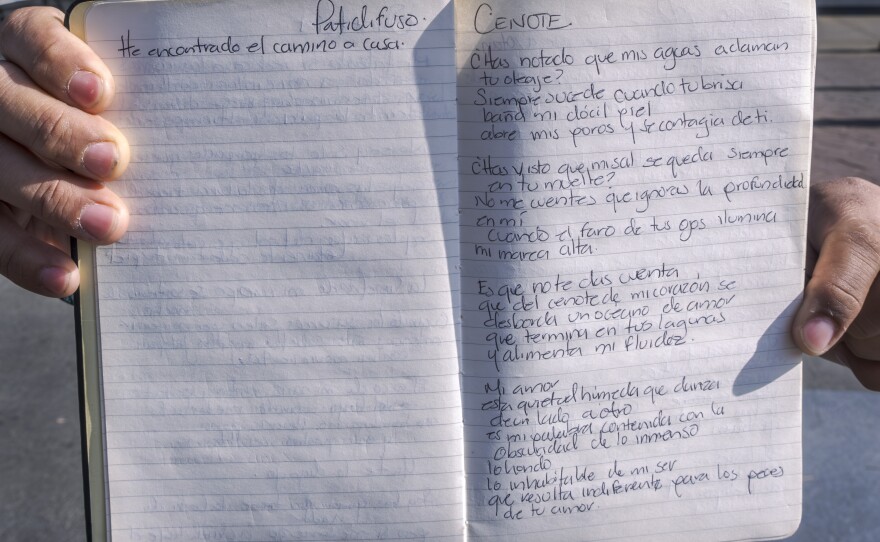 Patidifuso.
He encontrado el camino a casa.
CENOTE.
¿Has notado que mis aguas aclaman
tu oleaje?
Siempre sucede cuando tu brisa
baña mi dócil piel
abre mis poros y se contagia de ti.
¿Has visto que mi sal se queda siempre
en tu muelle?
No me cuentes que ignoras la profundidad
en mí
cuando el faro de tus ojos ilumina
mi marea alta.
Es que no te das cuenta
que del cenote de mi corazón se
desborda un océano de amor
que termina en tus lagunas
y alimenta mi fluidez.
Mi amor
esta quietud húmeda que danza
de un lado a otro
es mi palabra contenida con la
obscuridad de lo inmenso
lo hondo
lo inhabitable de mi ser
que resulta indiferente para los peces
de tu amor.